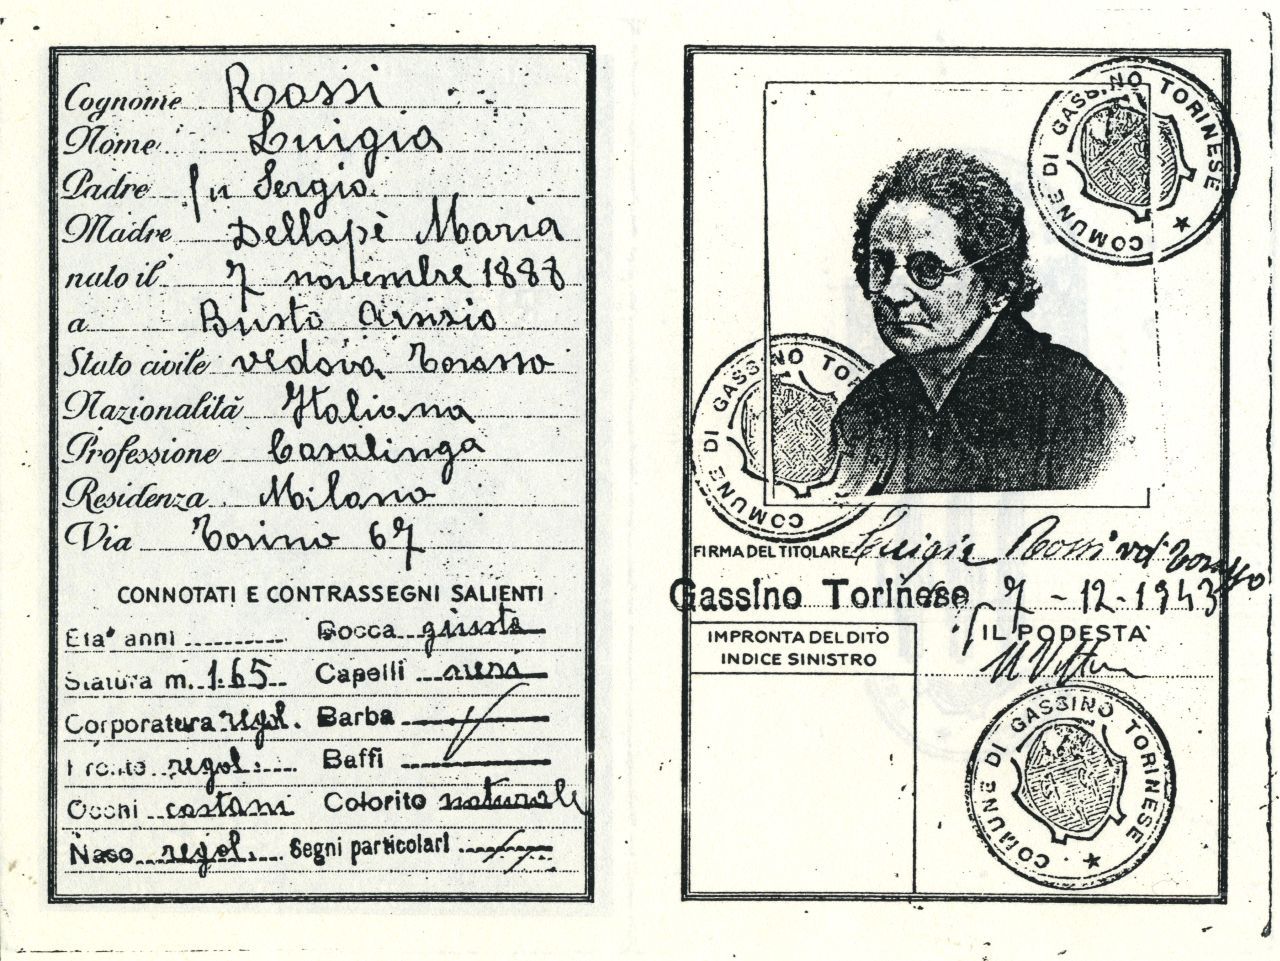 Cognome Rossi
Nome Luigia
Padre fu Sergio
Madre Dellapè Maria
nato il 7 novembre 1888
a Busto Arsizio
Stato civile vedova Torasso
Nazionalità Italiana
Professione Casalinga
Residenza Milano
Via Torino 67
CONNOTATI E CONTRASSEGNI SALIENTI
Età anni Bocca giusta
Statura m. 1.65 Capelli
Corporatura regol. Barba
Fronte regol. Baffi
Occhi castani Colorito naturale
Naso regol. Segni particolari
COMUNE DI GASSINO TORINESE
COMUNE DI GASSINO TOR
FIRMA DEL TITOLARE Luigia Rossi ved. Torasso
Gassino Torinese 7-12-1943
IMPRONTA DEL DITO
INDICE SINISTRO
IL PODESTA'
COMUNE DI GASSINO TORINESE